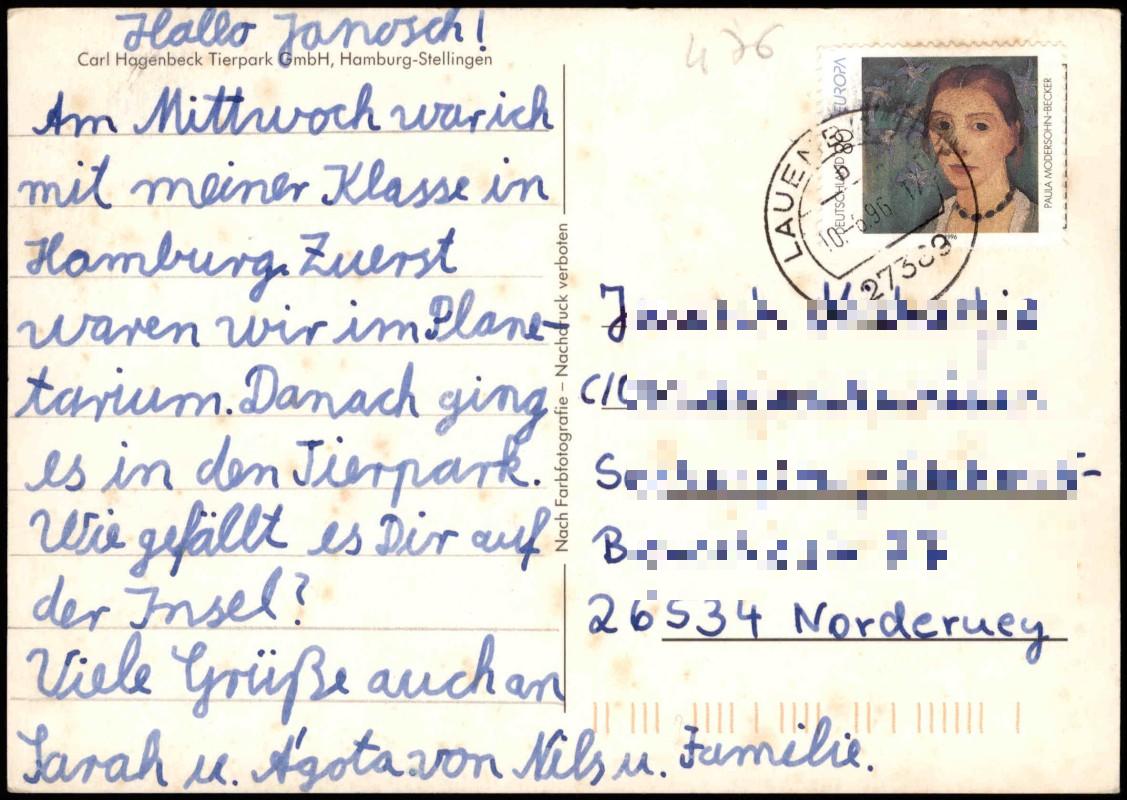 Hallo Janosch!
Carl Hagenbeck Tierpark GmbH, Hamburg-Stellingen
Am Mittwoch war ich
mit meiner Klasse in
Hamburg. Zuerst
waren wir im Plane-
tarium. Danach ging
es in den Tierpark.
Wie gefällt es Dir auf
der Insel?
Viele Grüße auch an
Sarah u. Ágota von Nils u. Familie.
Nach Farbfotografie – Nachdruck verboten
476
EUROPA
DEUTSCHLAND
PAULA MODERSOHN-BECKER
1996
27389
26534 Norderney